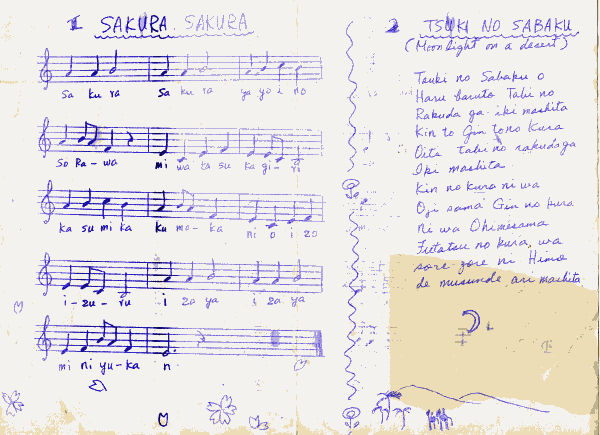 1 SAKURA SAKURA
Sa ku ra Sa ku ra ya yo i no
So Ra - wa mi wa ta su ka gi - ri
ka su mi ka ku mo - ka ni o i zo
i - zu - ru i za ya i za ya
mi ni yu - ka n.
2 TSUKI NO SABAKU
(Moonlight on a desert)
Tsuki no Sabaku o
Haru baruto Tabi no
Rakuda ga iki mashita
Kin to Gin tono Kura
Oite tabi no rakuda ga
Iki mashita.
Kin no kura ni wa
Oji sama Gin no kura
ni wa Ohimesama
Futatsu no kura, wa
sore zore ni Himo
de musunde ari mashita